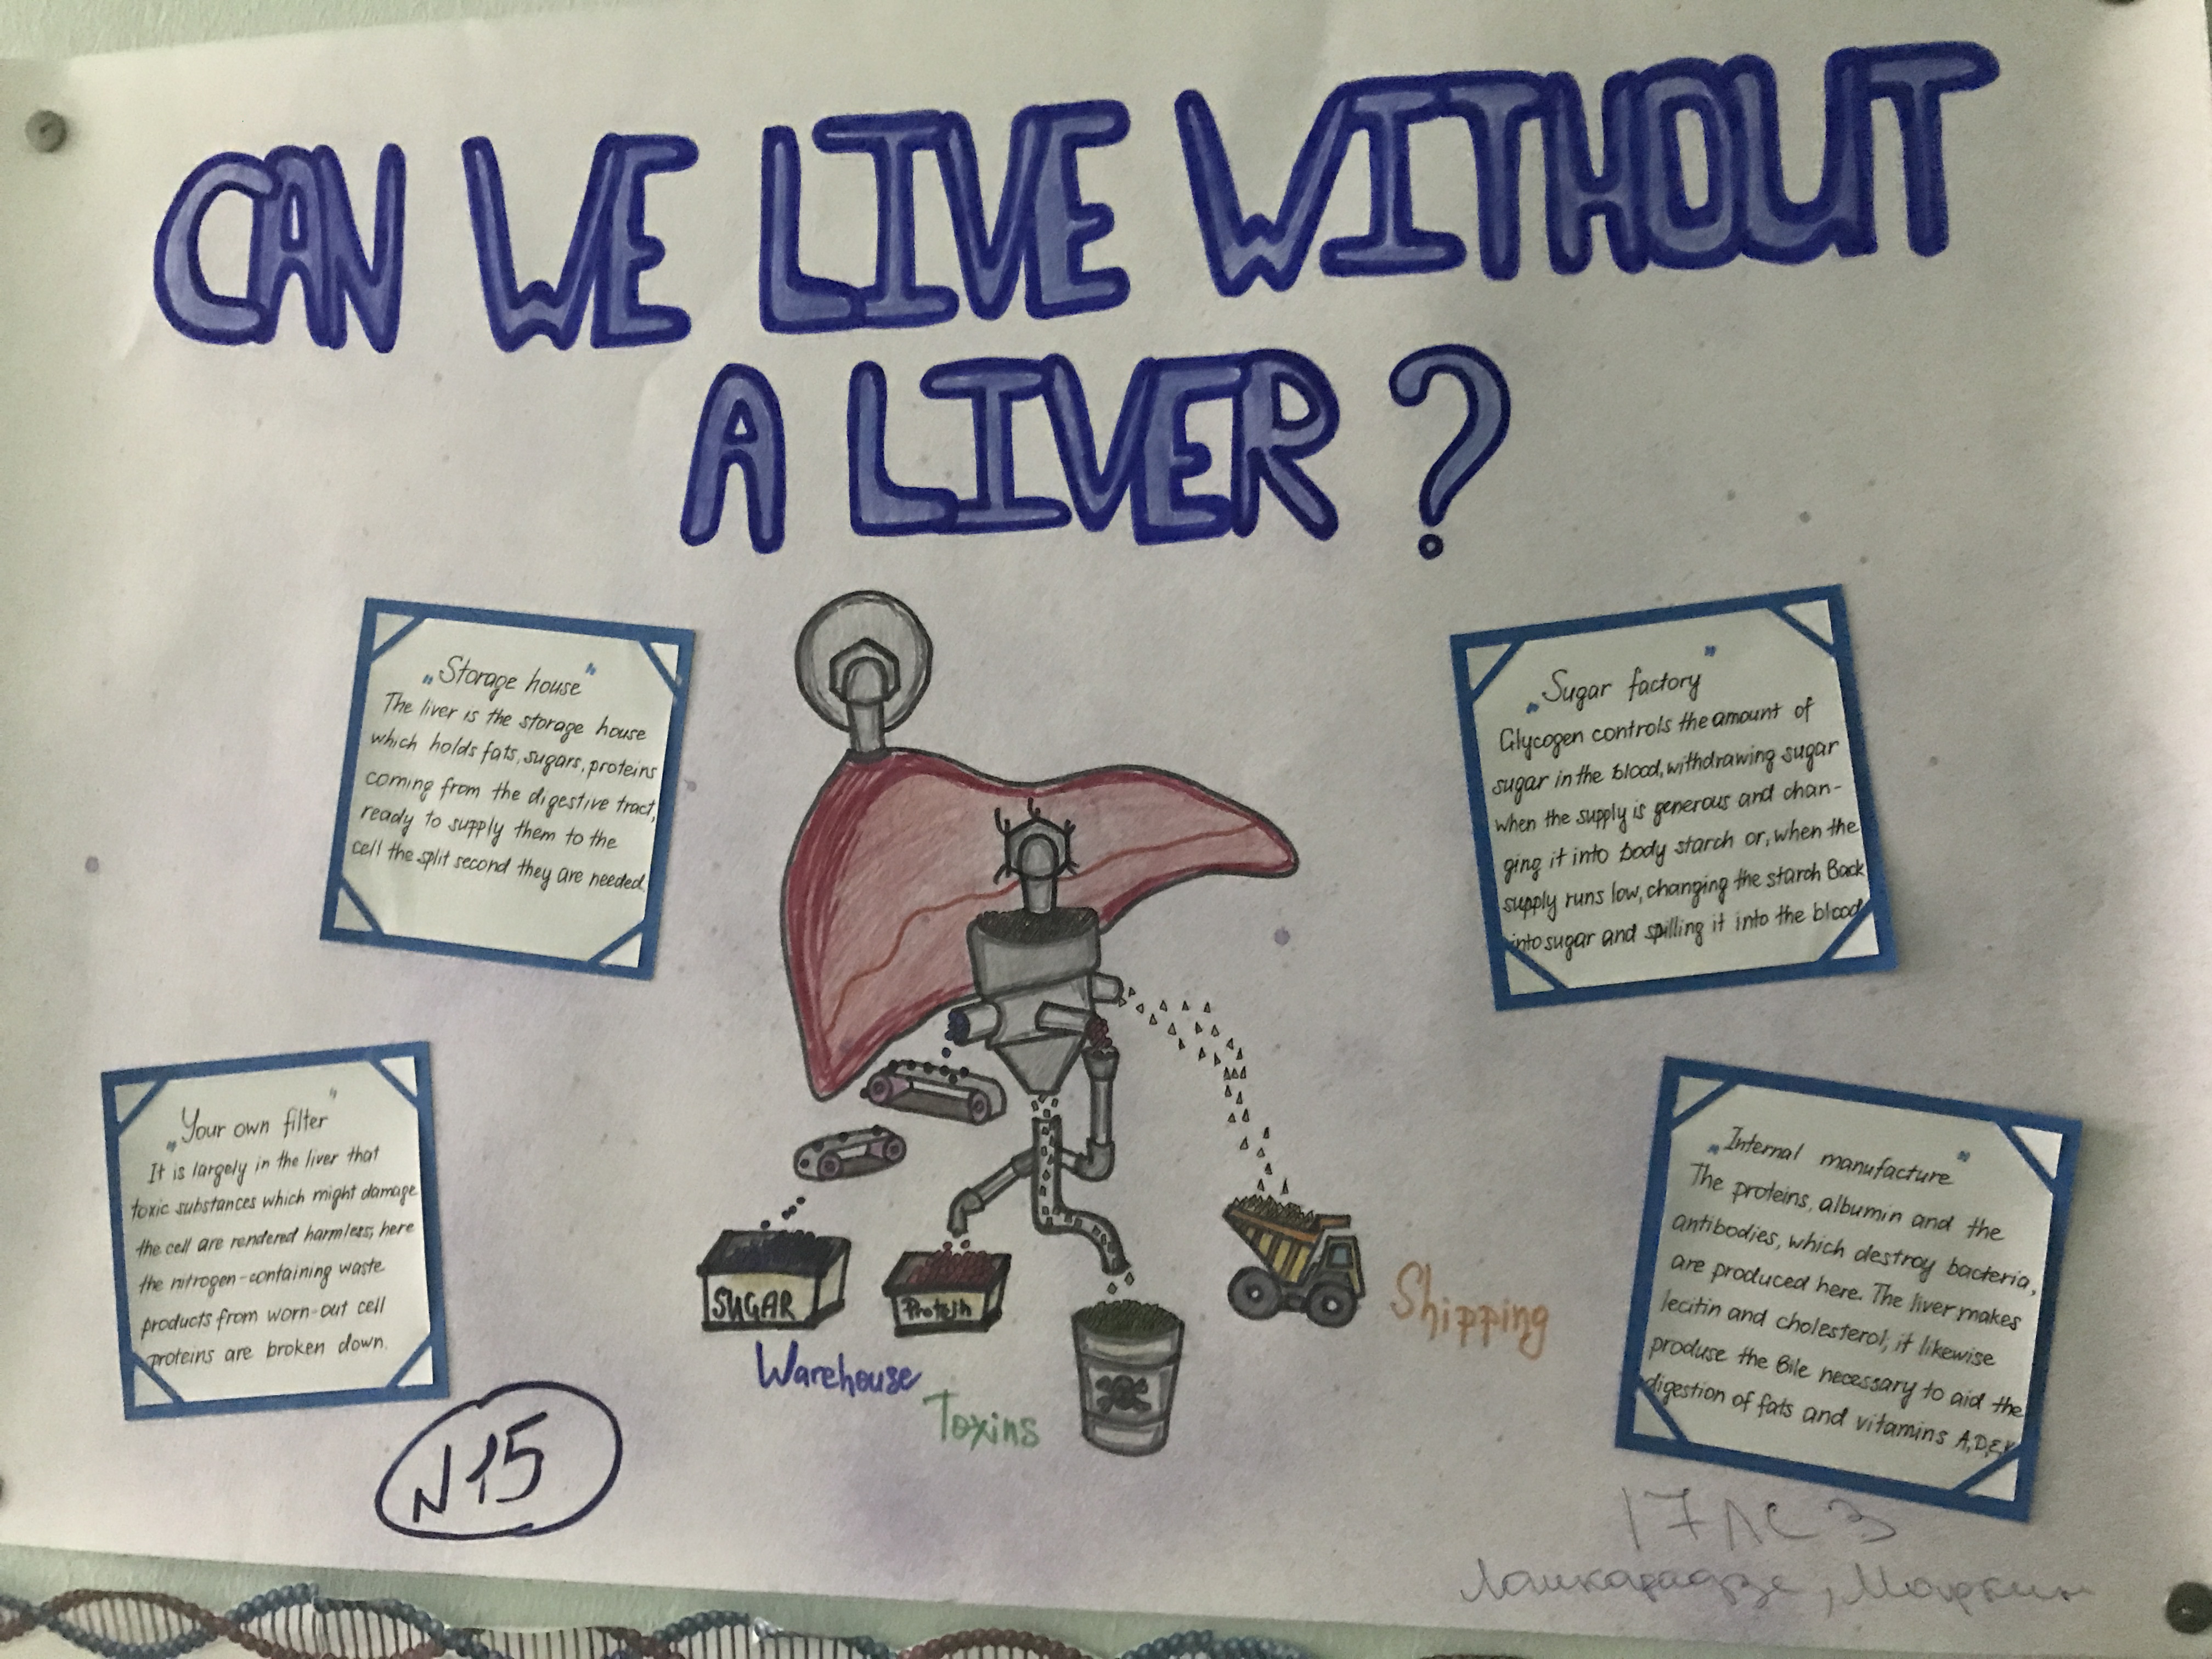 CAN WE LIVE WITHOUT
A LIVER?
„Storage house"
The liver is the storage house
which holds fats, sugars, proteins
coming from the digestive tract,
ready to supply them to the
cell the split second they are needed.
„Sugar factory"
Glycogen controls the amount of
sugar in the blood, withdrawing sugar
when the supply is generous and chan-
ging it into body starch or, when the
supply runs low, changing the starch Back
into sugar and spilling it into the blood
„Your own filter"
It is largely in the liver that
toxic substances which might damage
the cell are rendered harmless; here
the nitrogen-containing waste
products from worn-out cell
proteins are broken down.
„Internal manufacture"
The proteins, albumin and the
antibodies, which destroy bacteria,
are produced here. The liver makes
lecitin and cholesterol; it likewise
produse the Bile necessary to aid the
digestion of fats and vitamins A,D,E,K
SUGAR
Protein
Warehouse
Toxins
Shipping
N15
17ЛС3
Лашкарадзе, Маркин